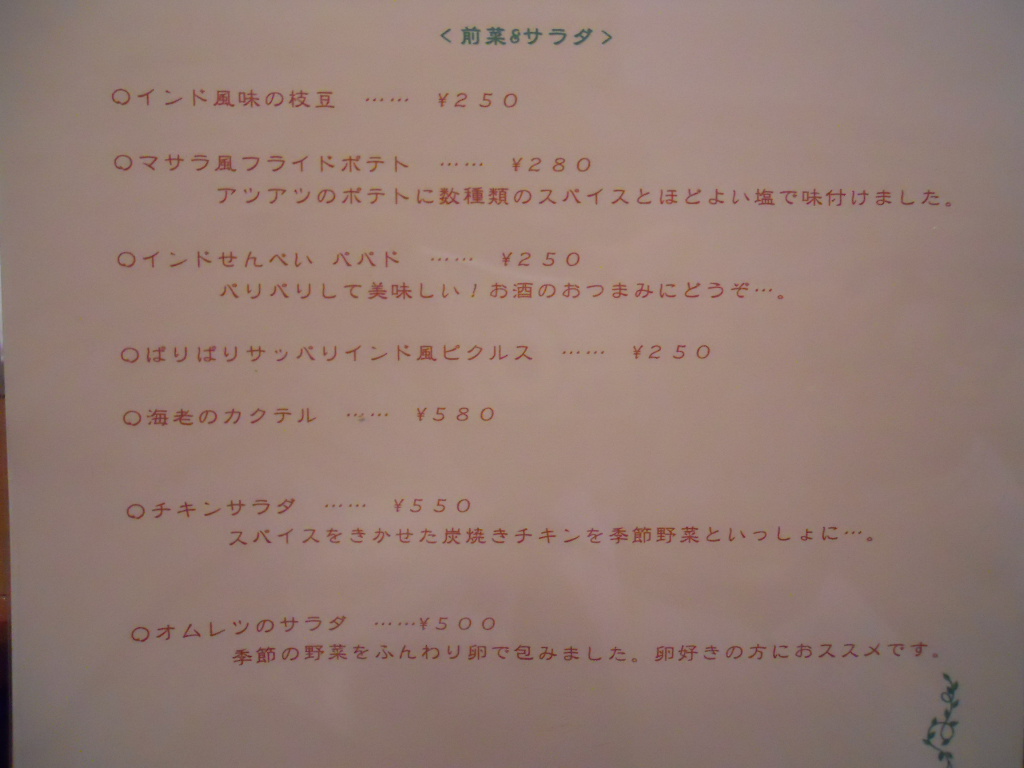 ＜前菜&サラダ＞
○インド風味の枝豆 …… ¥250
○マサラ風フライドポテト …… ¥280
アツアツのポテトに数種類のスパイスとほどよい塩で味付けました。
○インドせんべい パパド …… ¥250
パリパリして美味しい！お酒のおつまみにどうぞ…。
○ぱりぱりサッパリインド風ピクルス …… ¥250
○海老のカクテル …… ¥580
○チキンサラダ …… ¥550
スパイスをきかせた炭焼きチキンを季節野菜といっしょに…。
○オムレツのサラダ ……¥500
季節の野菜をふんわり卵で包みました。卵好きの方におススメです。